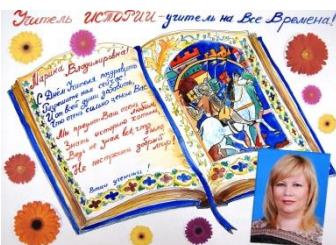 Учитель ИСТОРИИ - учитель на Все Времена!
Марина Владимировна!
С Днём Учителя поздравить
Разрешите нам сейчас
И от всей души добавить,
Что очень сильно ценим Вас
Мы предмет Ваш очень любим,
Знать историю хотим,
Ведь не зная всё, что было
Не построить добрый мир!
Ваши ученики